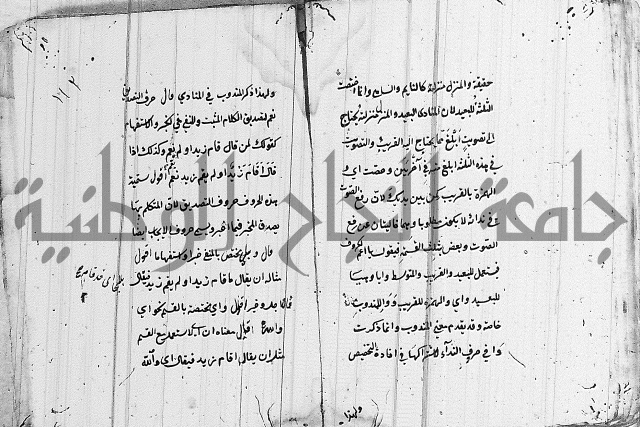 حقيقة والمنزل منزلته كالنايم والساهي وانما اختصت
الثلثة للبعيد لان المنادى البعيد والمنزل منزلته يحتاج
الى تصويت ابلغ مما يحتاج اليه القريب والتصويت
في هذه الثلثة ابلغ منه في اخريين وخصت اي و
الهمزة بالقريب كمن بين يديك لان رفع الصوت
في ندائه لا يكون مطلوبا وهما خاليتان عن رفع
الصوت وبعض فيقول يا اعم الحروف
تستعمل للبعيد والقريب والمتوسط وايا وهيا
للبعيد واي والهمزة للقريب و وا للمندوب
خاصة وقد يقدم معنى المندوب وانما ذكرت
وا في حرف النداء لاشتراكهما في افادة التخصيص
ولهذا
ولهذا ذكر المندوب في المنادى قال حرف التصديق
نعم لتصديق الكلام المثبت والمنفي في الخبر والاستفهام
كقولك لمن قال قام زيد او لم يقم وكذلك اذا
قال اقام زيد او لم يقم زيد نعم اقول سميت
هذه الحروف حروف التصديق لان المتكلم بها
يصدق المخبر فيما اخبر ويسمى حروف الايجاب ايضا
قال وبلى يختص بالمنفي خبرا او استفهاما اقول
مثال ان يقال ما قام زيد او لم يقم زيد فيقال
بلى اي قد قام
اقول واي يختص بالقسم نحو اي
والله اقول معناه ان لا يستعمل مع القسم
مثال ان يقال اقام زيد فيقال اي والله
جامعة النجاح الوطنية